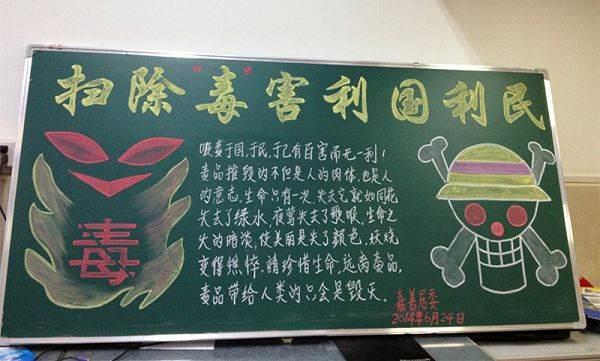 扫除"毒"害利国利民
吸毒于国、于民、于己有百害而无一利！
毒品摧毁的不但是人的肉体，也是人
的意志。生命只有一次，失去它就如同花
失去了绿水，夜莺失去了歌喉，生命之
火的暗淡，使美丽是失了颜色，妖娆
变得憔悴，請珍惜生命，远离毒品。
毒品带给人类的只会是毁灭。
毒
嘉善居委
2014年6月24日